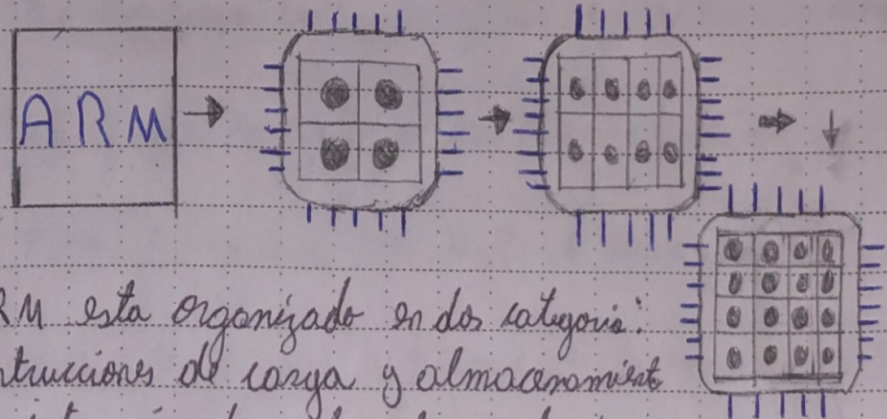 ARM
RM esta organizado en dos categoria:
trucciones de carga y almacenamient